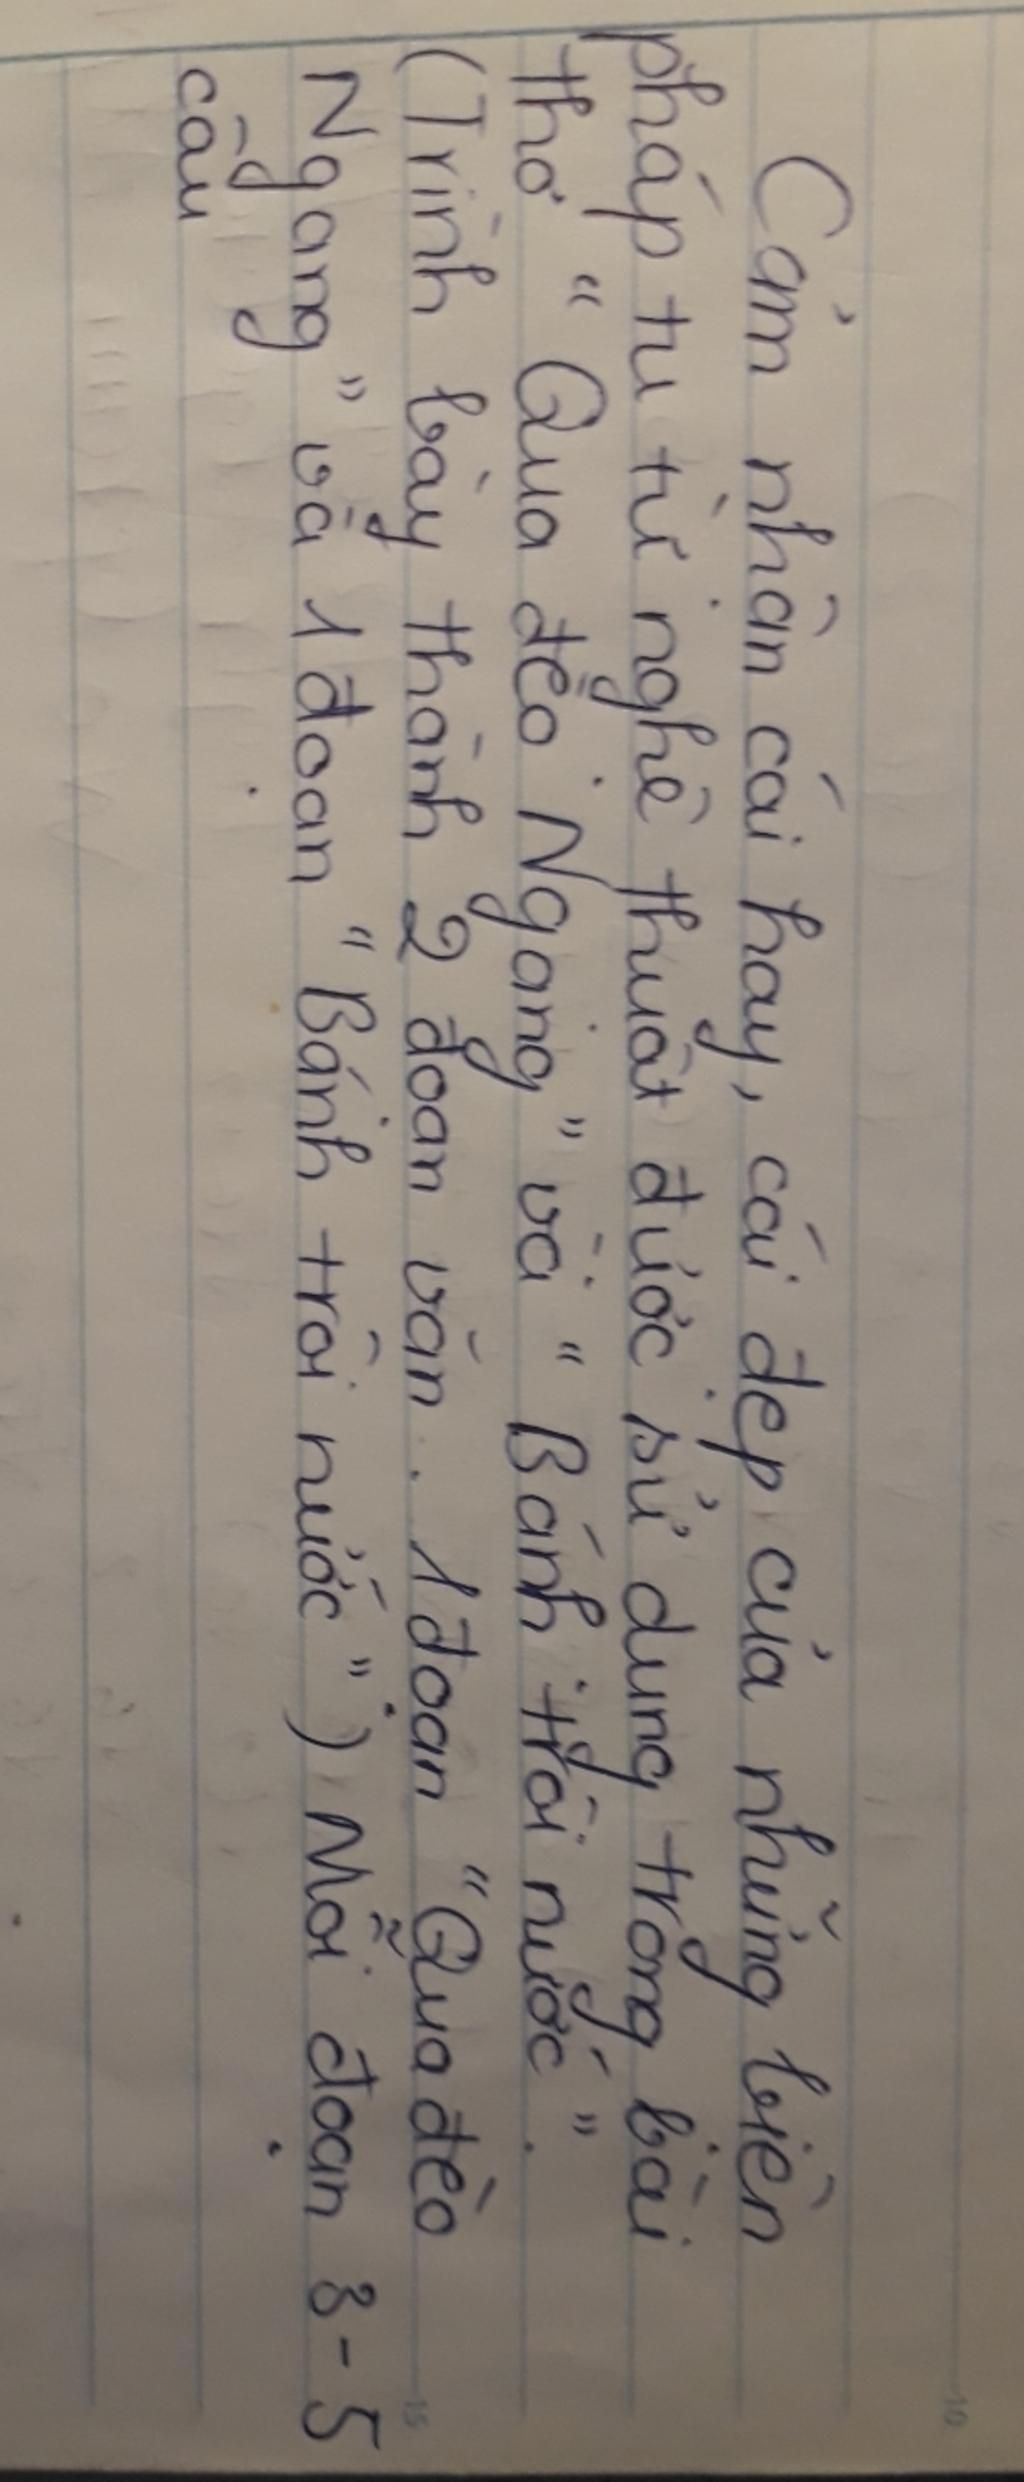 Cảm nhận cái hay, cái đẹp của những biện
pháp tu từ nghệ thuật được sử dụng trong bài
thơ "Qua đèo Ngang" và "Bánh trôi nước".
(Trình bày thành 2 đoạn văn. 1 đoạn "Qua đèo
Ngang" và 1 đoạn "Bánh trôi nước") Mỗi đoạn 3-5
câu
10
15